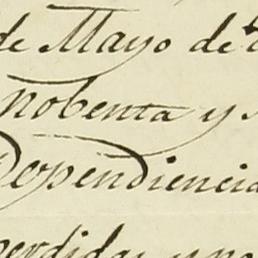 de Mayo de
nobenta y
Dependiencia
perdidas y no